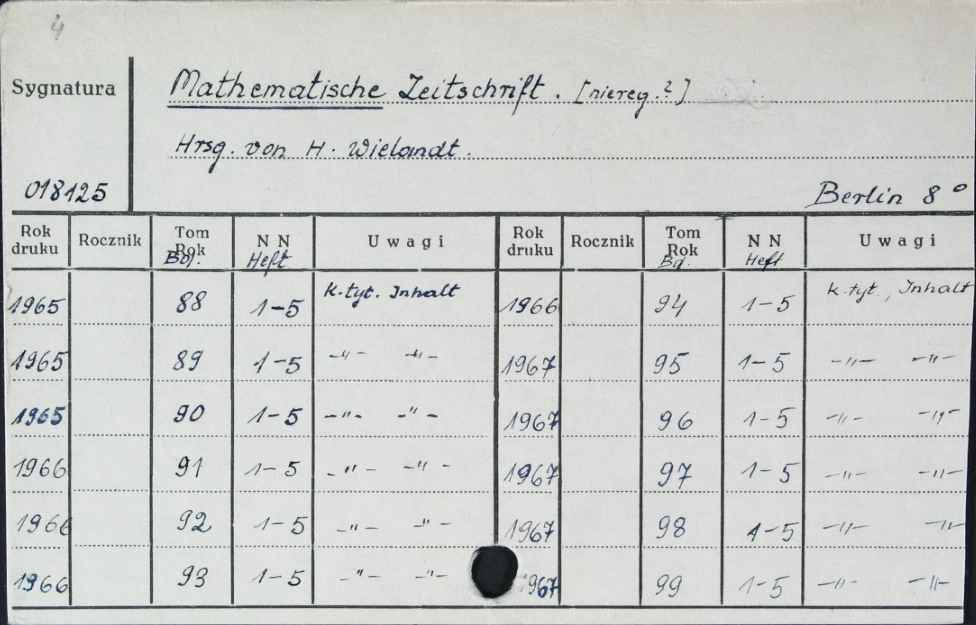 4
Sygnatura
Mathematische Zeitschrift. [niereg.?]
Hrsg. von H. Wielandt.
018125
Berlin 8°
Rok druku Rocznik Tom Rok Bd. N N Heft Uwagi Rok druku Rocznik Tom Rok Bd. N N Heft Uwagi
1965 88 1-5 k.tyt. Inhalt 1966 94 1-5 k.tyt., Inhalt
1965 89 1-5 -"- -"- 1967 95 1-5 -"- -"-
1965 90 1-5 -"- -"- 1967 96 1-5 -"- -"-
1966 91 1-5 -"- -"- 1967 97 1-5 -"- -"-
1966 92 1-5 -"- -"- 1967 98 1-5 -"- -"-
1966 93 1-5 -"- -"- 1967 99 1-5 -"- -"-